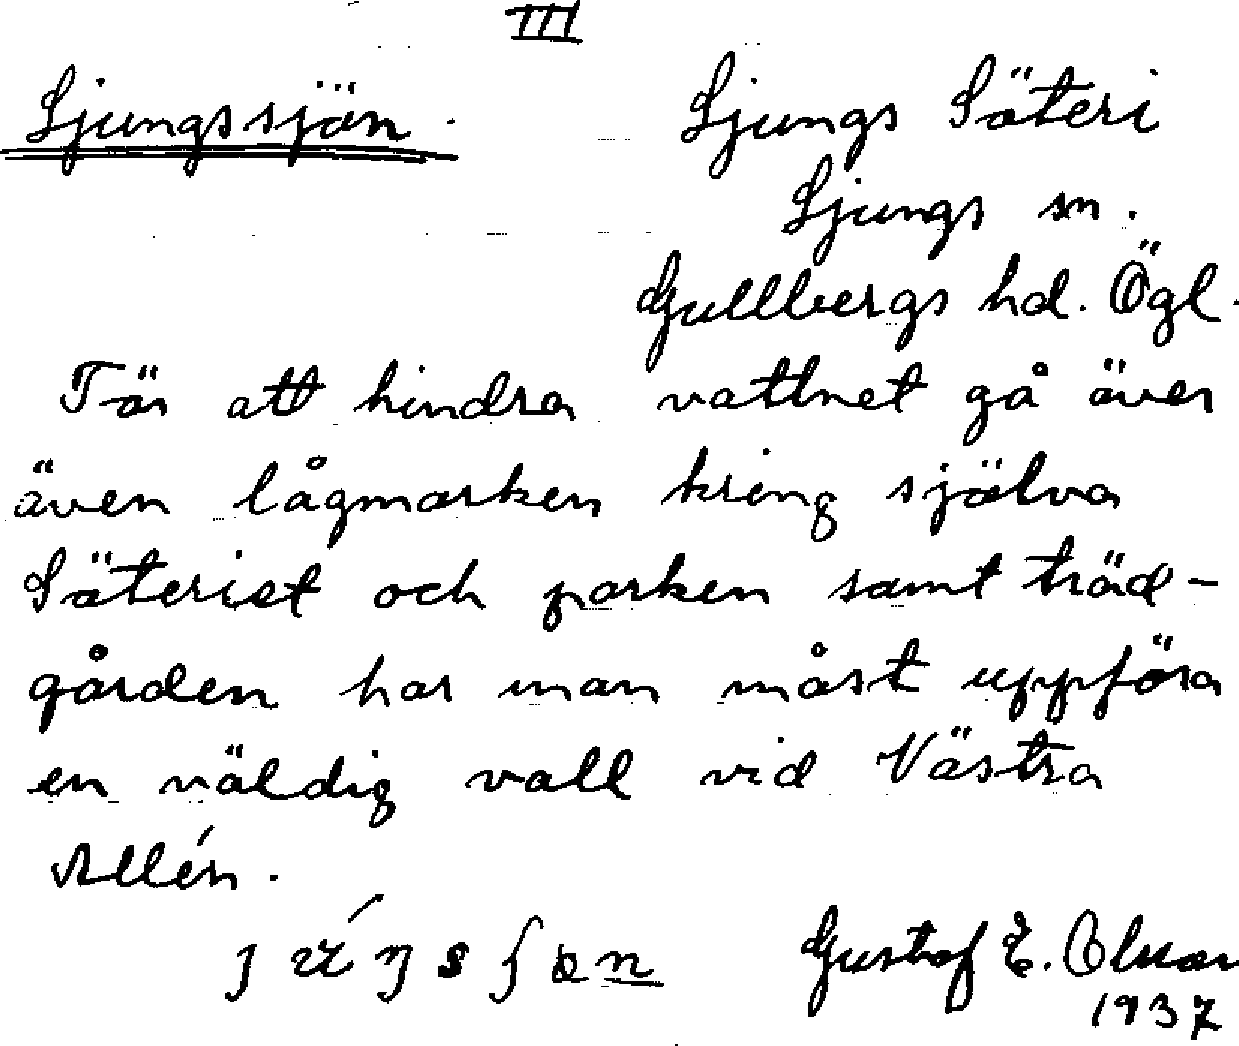 III
Ljungssjön. Ljungs Säteri
Ljungs sn.
Gullbergs hd. Ögl.
För att hindra vattnet gå över
även lågmarken kring själva
Säteriet och parken samt träd-
gården har man måst uppföra
en väldig vall vid Västra
Allén.
Gustaf E. Olsson
1937